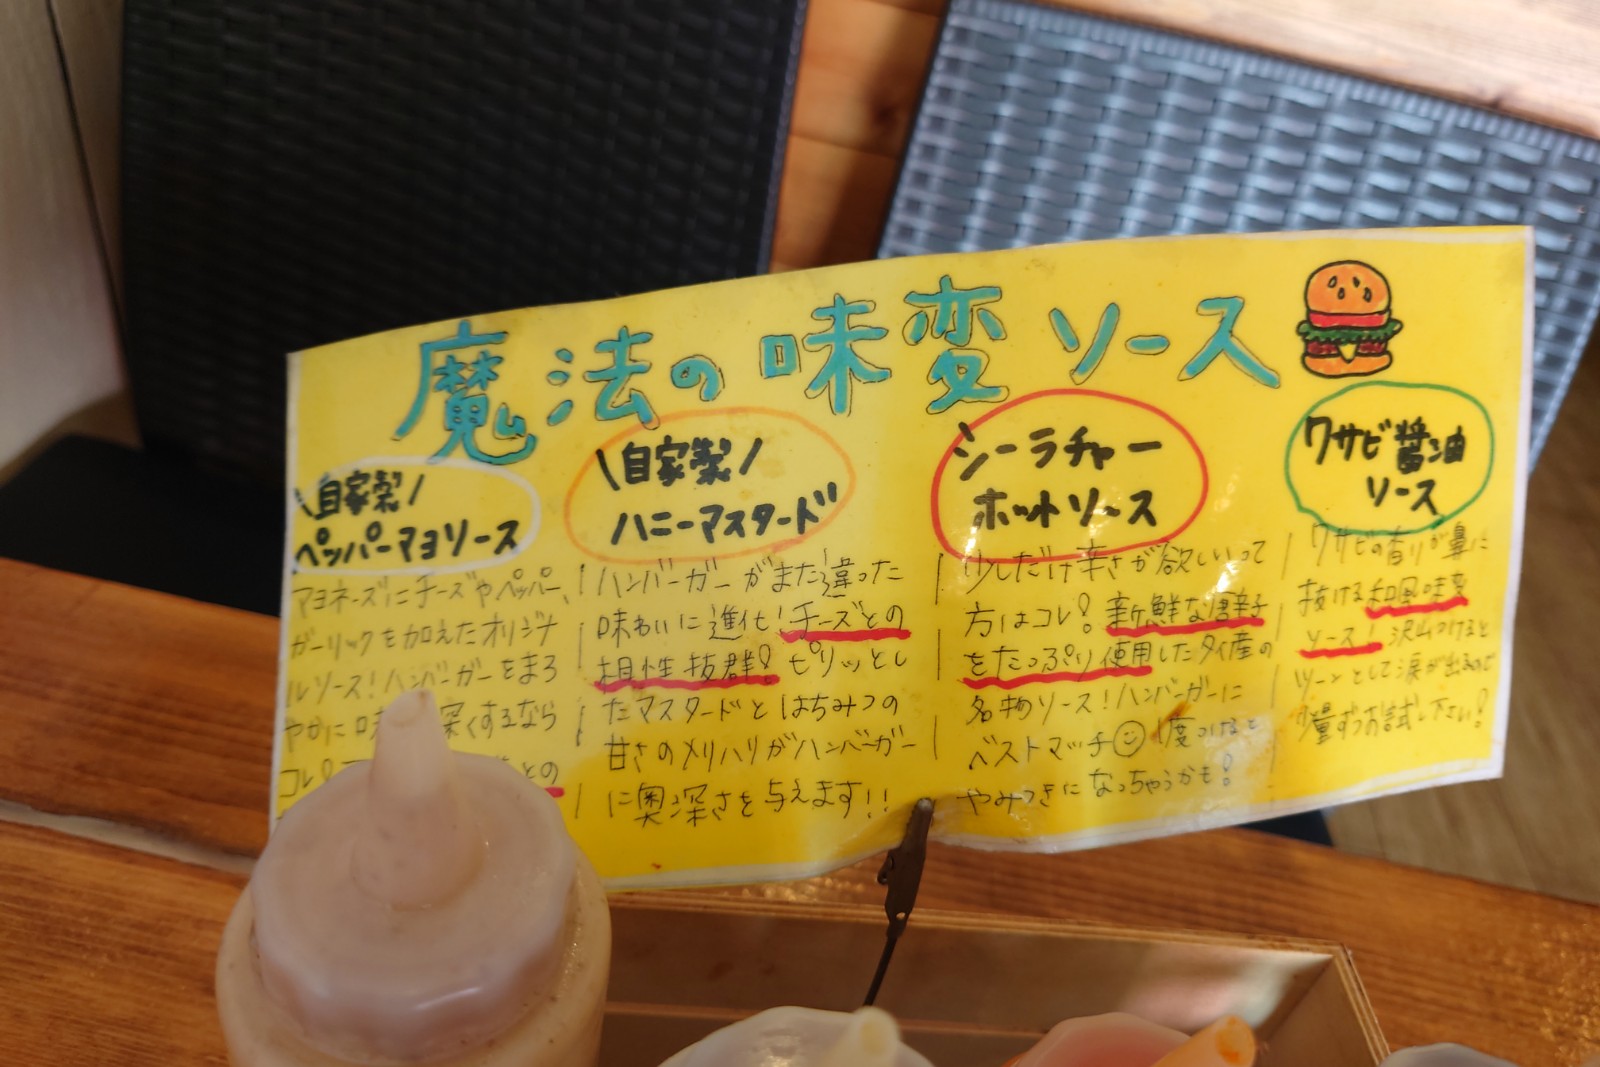 魔法の味変ソース
\自家製/
ペッパーマヨソース
マヨネーズにチーズやペッパー、
ガーリックを加えたオリジナ
ルソース!ハンバーガーをまろ
やかに味 深くするなら
コレ! との
\自家製/
ハニーマスタード
ハンバーガーがまた違った
味わいに進化!チーズとの
相性抜群!ピリッとし
たマスタードとはちみつの
甘さのメリハリがハンバーガー
に奥深さを与えます!!
シーラチャー
ホットソース
少しだけ辛さが欲しいって
方はコレ!新鮮な唐辛子
をたっぷり使用したタイ産の
名物ソース!ハンバーガーに
ベストマッチ☺1度つけると
やみつきになっちゃうかも!
ワサビ醤油
ソース
ワサビの香りが鼻に
抜ける和風味変
ソース!沢山つけると
ツーンとして涙が出るので
少量ずつお試し下さい!